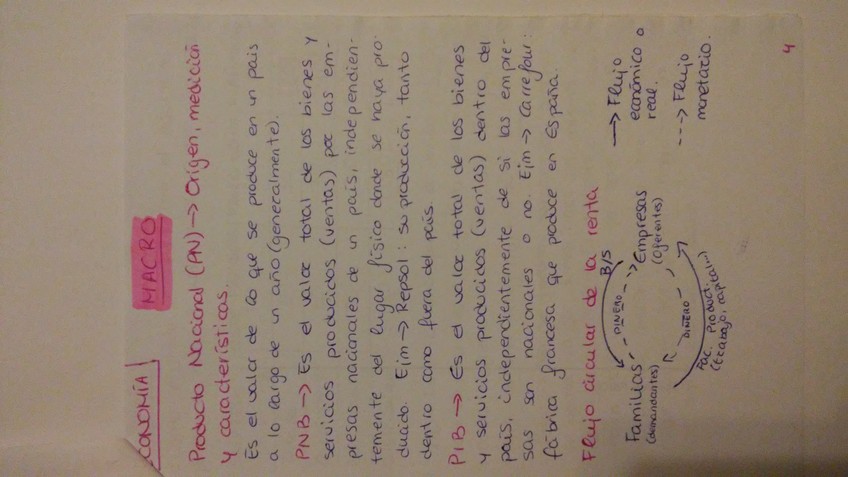 ECONOMÍA
MACRO
Producto Nacional (PN) → Origen, medición
y características.
Es el valor de lo que se produce en un país
a lo largo de un año (generalmente).
PNB → Es el valor total de los bienes y
servicios producidos (ventas) por las em-
presas nacionales de un país, independien-
temente del lugar físico donde se haya pro-
ducido. Ejm → Repsol: su producción, tanto
dentro como fuera del país.
PIB → Es el valor total de los bienes
y servicios producidos (ventas) dentro del
país, independientemente de si las empre-
sas son nacionales o no. Ejm → Carrefour:
fábrica francesa que produce en España.
Flujo circular de la renta
B/S
DINERO
Familias
(demandantes)
Empresas
(oferentes)
DINERO
Fac. product.
(trabajo, capital...)
→ Flujo
económico o
real.
---> Flujo
monetario.
4